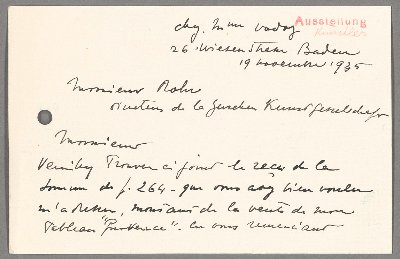 chez Mme Vadas
Ausstellung
26 Wiesenstrasse Baden
19 novembre 1935
Monsieur Rohr
directeur de la Zurcher Kunstgesellschaft
Monsieur
Veuillez trouver ci joint le reçu de la
somme de f. 264 - que vous avez bien voulu
m'adresser, montant de la vente de mon
tableau "Provence". En vous remerciant